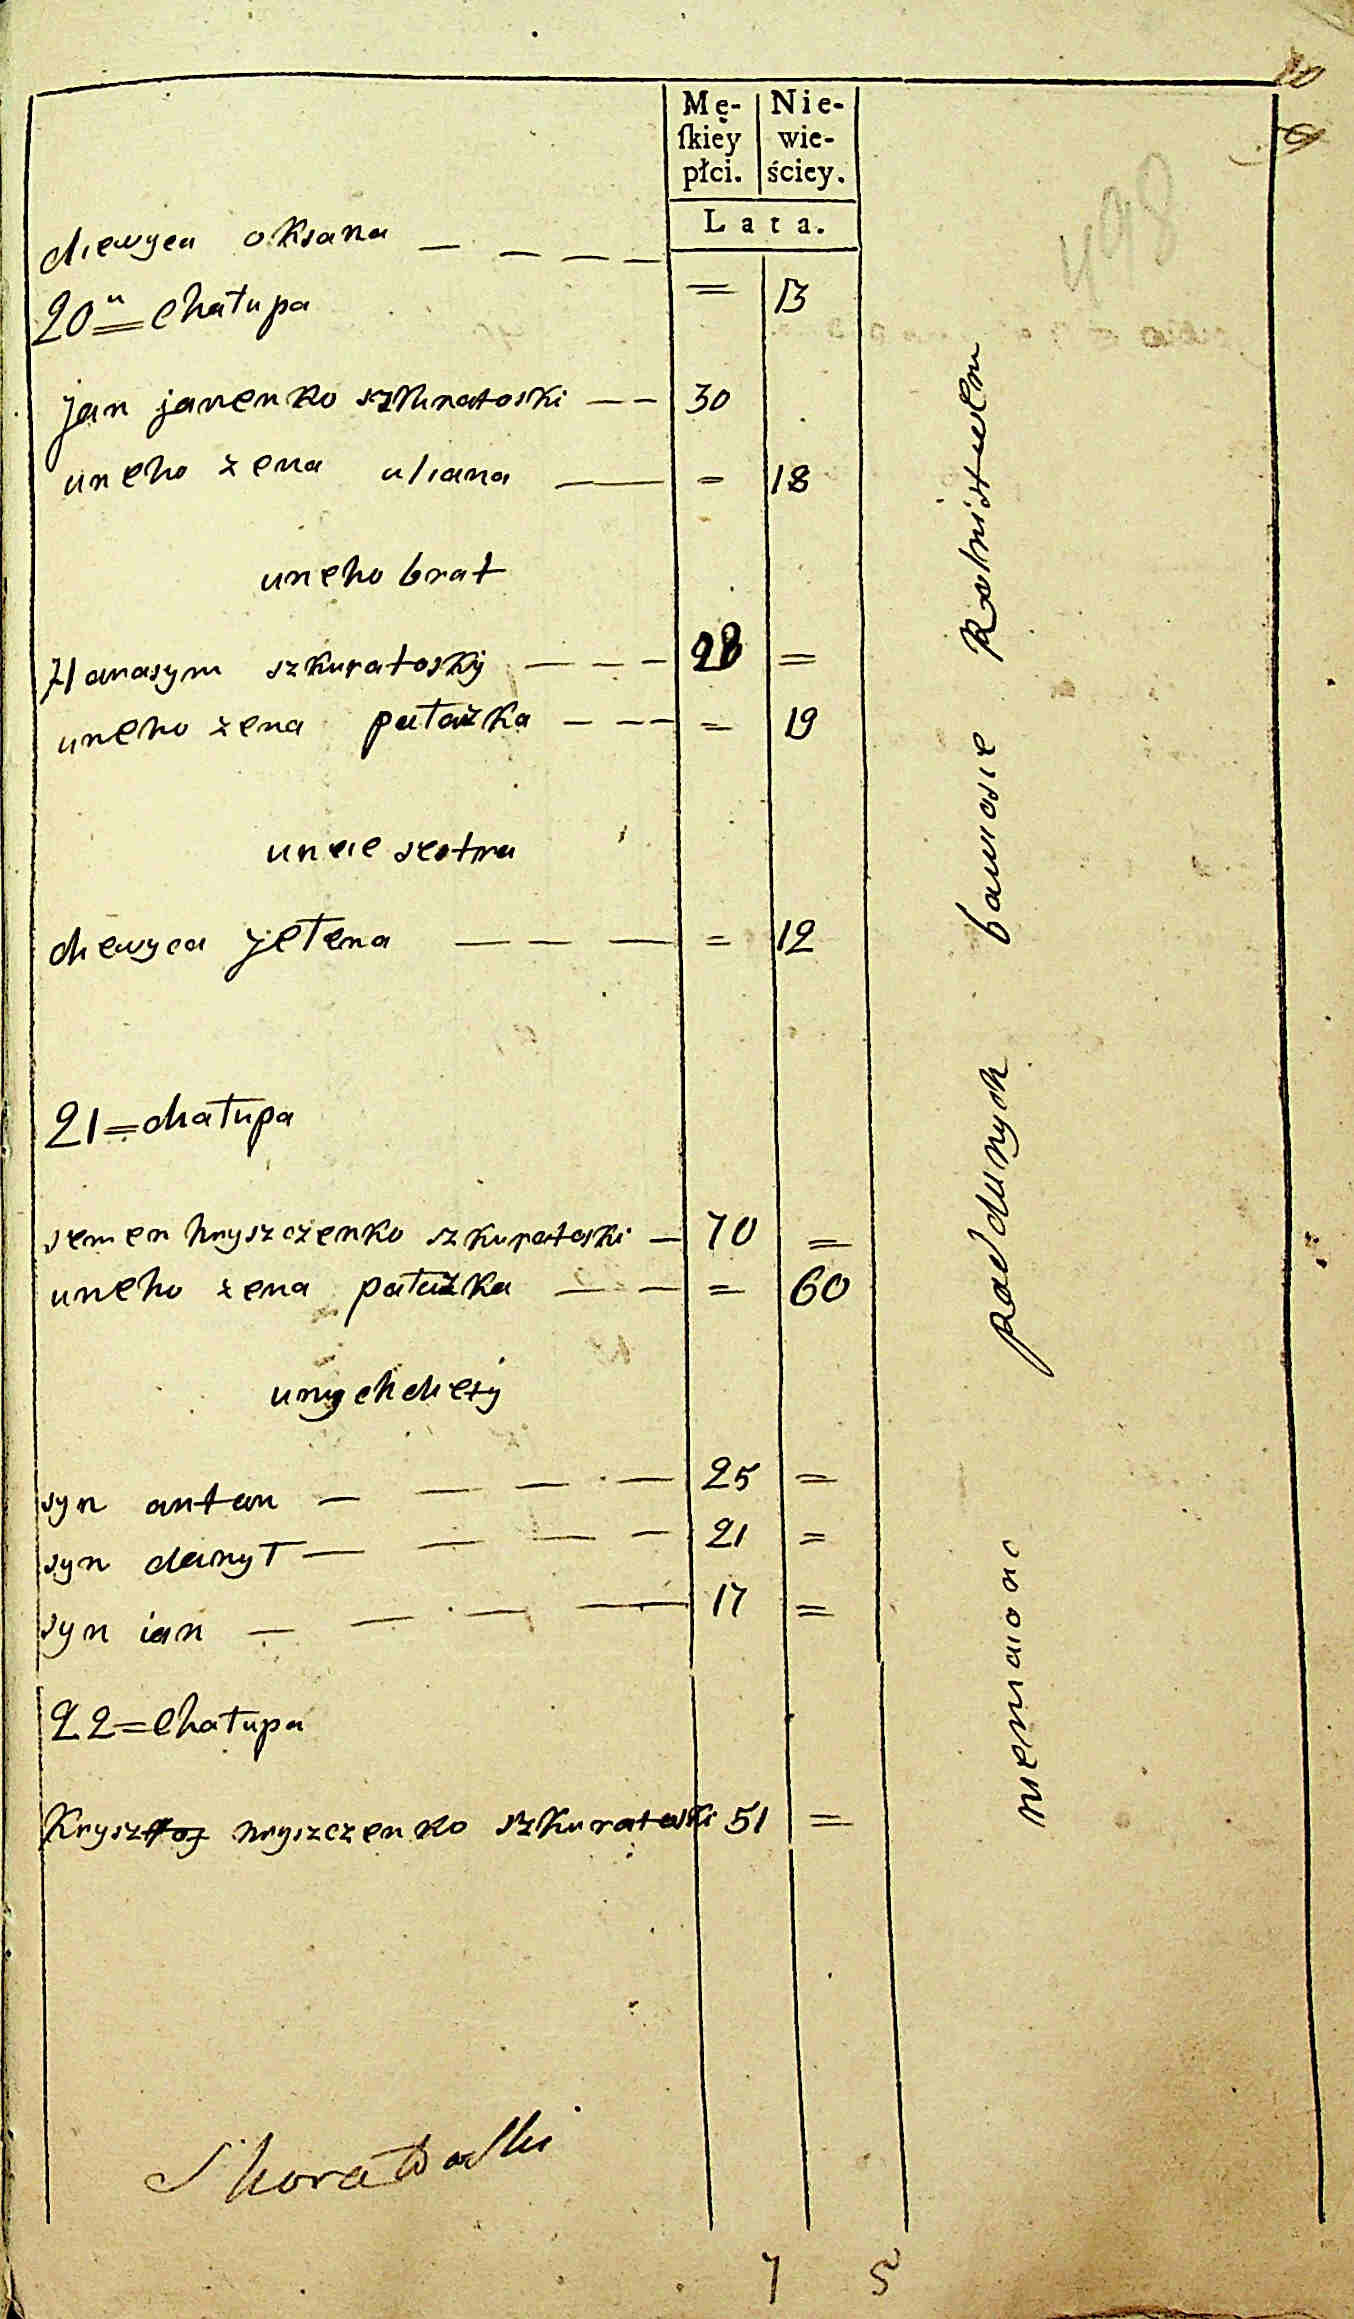 Mę-
ſkiey
płci.
Nie-
wie-
ściey.
Lata.
498
diewyca oksana — — — — = 13
20a = Chałupa
jan janenko szkuratoski — — 30
uneho żena uliana — = 18
uneho brat
Hanasym szkuratoskij — — — 28 =
uneho żena pałażka — — — = 19
uneie sestra
diewyca jełena — — — = 12
21 = chałupa
semen hryszczenko szkuratoski — 70 =
uneho żena pałażka — — = 60
unych diety
syn antan — — — — 25 =
syn danył — — — — 21 =
syn ian — — — — 17 =
22 = Chałupa
Krysztof hryszczenko szkuratoski 51 =
niemaiono poddanych bawiosie Rolnistwem
7 5